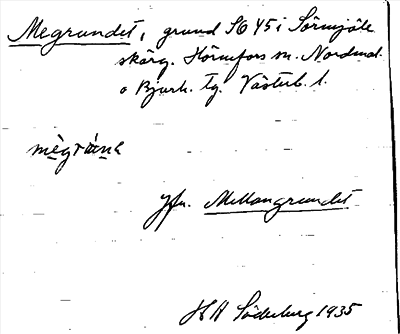 Megrundet, grund SG 45 i Sörmjöle
skärg. Hörnefors sn. Nordmal.
o Bjurh. tg. Västerb. l.
Jfr. Mellangrundet
HH Söderberg 1935